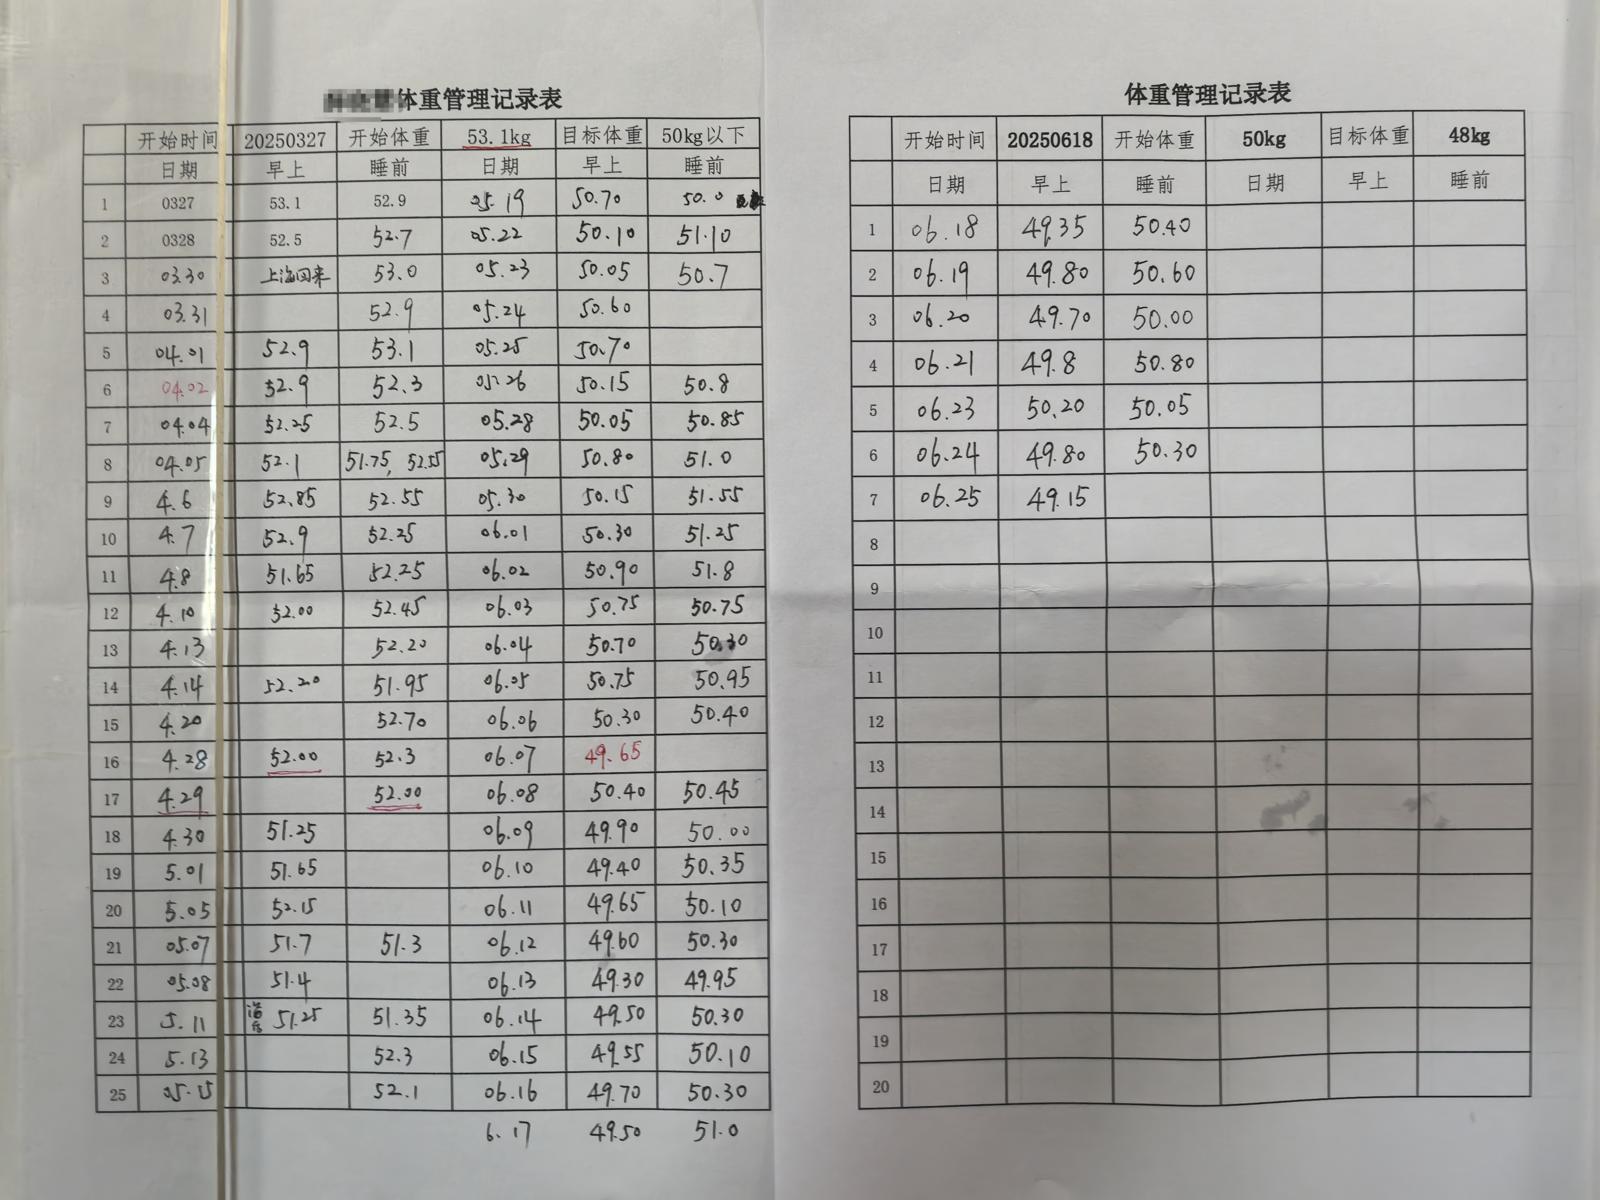 体重管理记录表
开始时间 20250327 开始体重 53.1kg 目标体重 50kg以下
日期 早上 睡前 日期 早上 睡前
1 0327 53.1 52.9 05.19 50.70 50.0
2 0328 52.5 52.7 05.22 50.10 51.10
3 03.30 上海回来 53.0 05.23 50.05 50.7
4 03.31 52.9 05.24 50.60
5 04.01 52.9 53.1 05.25 50.70
6 04.02 52.9 52.3 05.26 50.15 50.8
7 04.04 52.25 52.5 05.28 50.05 50.85
8 04.05 52.1 51.75, 52.55 05.29 50.80 51.0
9 4.6 52.85 52.55 05.30 50.15 51.55
10 4.7 52.9 52.25 06.01 50.30 51.25
11 4.8 51.65 52.25 06.02 50.90 51.8
12 4.10 52.00 52.45 06.03 50.75 50.75
13 4.13 52.20 06.04 50.70 50.30
14 4.14 52.20 51.95 06.05 50.75 50.95
15 4.20 52.70 06.06 50.30 50.40
16 4.28 52.00 52.3 06.07 49.65
17 4.29 52.00 06.08 50.40 50.45
18 4.30 51.25 06.09 49.90 50.00
19 5.01 51.65 06.10 49.40 50.35
20 5.05 52.15 06.11 49.65 50.10
21 05.07 51.7 51.3 06.12 49.60 50.30
22 05.08 51.4 06.13 49.30 49.95
23 5.11 51.25 51.35 06.14 49.50 50.30
24 5.13 52.3 06.15 49.55 50.10
25 05.15 52.1 06.16 49.70 50.30
6.17 49.50 51.0
体重管理记录表
开始时间 20250618 开始体重 50kg 目标体重 48kg
日期 早上 睡前 日期 早上 睡前
1 06.18 49.35 50.40
2 06.19 49.80 50.60
3 06.20 49.70 50.00
4 06.21 49.8 50.80
5 06.23 50.20 50.05
6 06.24 49.80 50.30
7 06.25 49.15
8
9
10
11
12
13
14
15
16
17
18
19
20